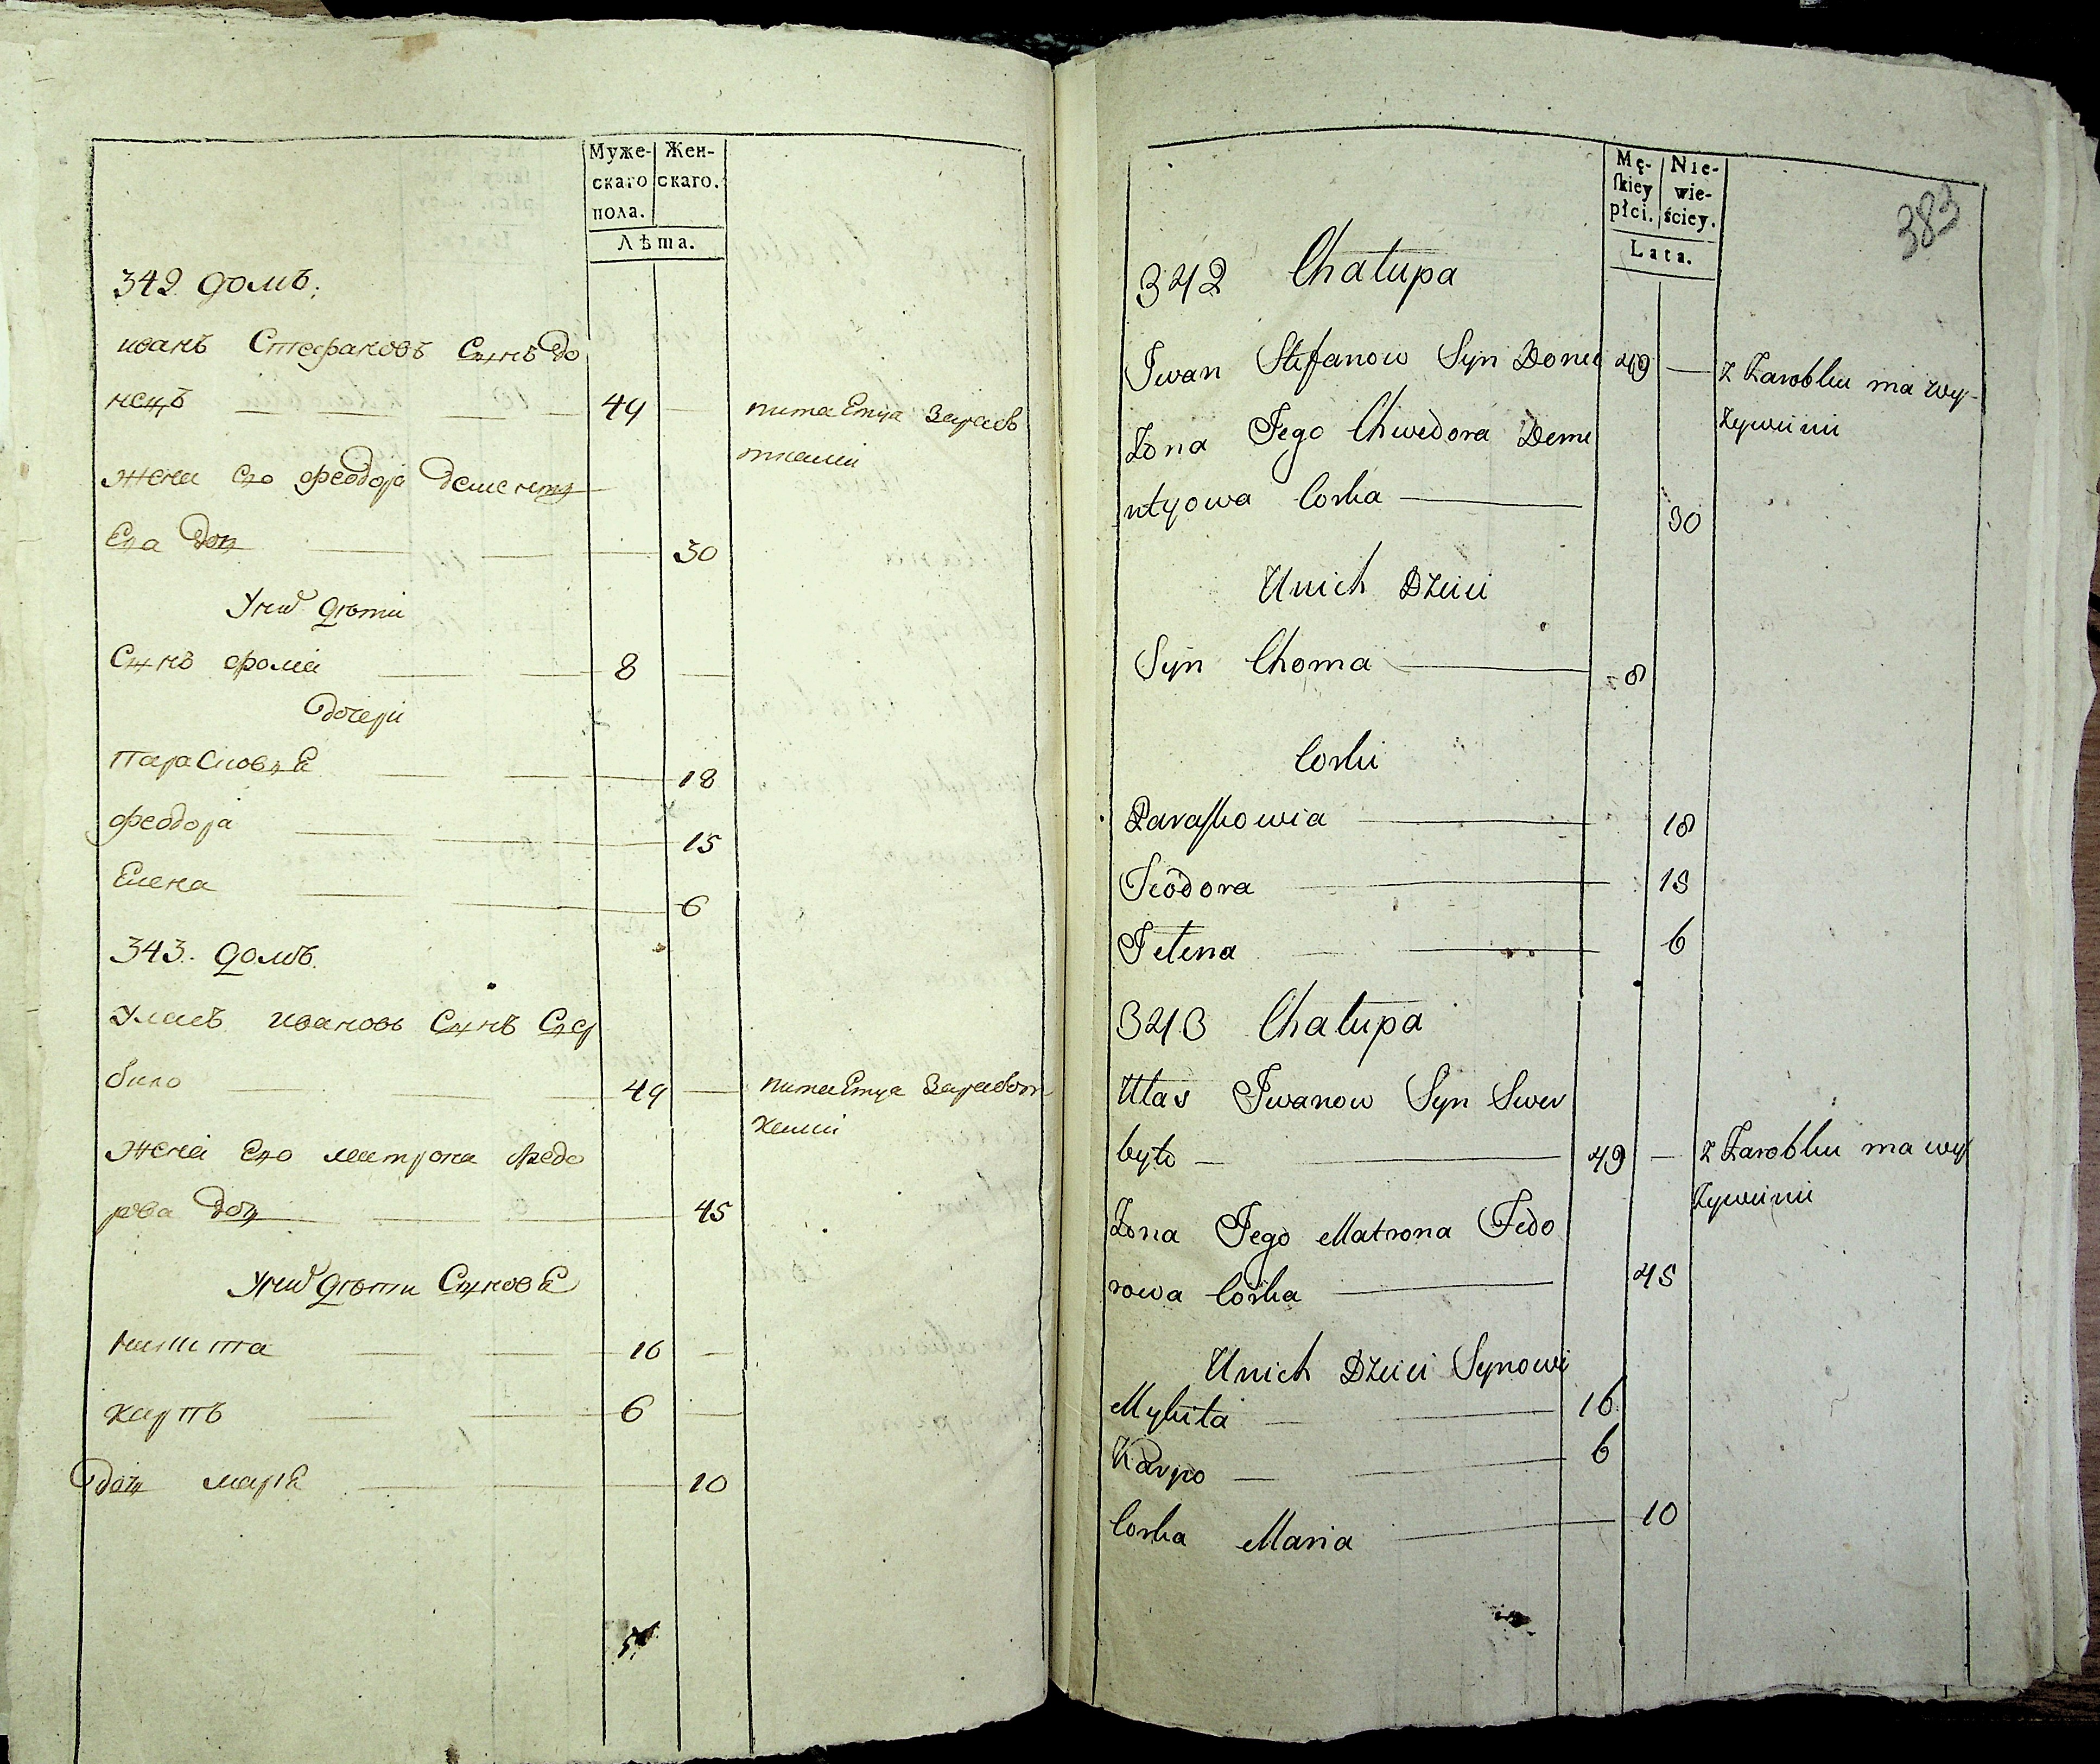 Муже-
скаго
пола.
Жен-
скаго.
Лѣта.
342 домъ.
иванъ Стефановъ Сынъ До
нецъ 49
питаЕтця Зараб
отками
жена его феодора дементи
Ева Доч 30
У них дѣти
Сынъ фома 8
Дочери
ПараСковиЕ 18
феодора 15
Елена 6
343. домъ.
Уласъ ивановъ Сынъ Свер
било 49
питаЕтця Заработ
ками
жена его матрона федо
рова Доч 45
У них дѣти СыновЕ
никита 16
карпъ 6
Доч мариЕ 10
383
Mę-
ſkiey
płci.
Nie-
wie-
ściey.
Lata.
342 Chałupa
Jwan Stefanow Syn Doniec 49
z Zarobku ma wy-
żywieni
Zona Jego Chwedora Deme
ntyowa Corka 30
U nich Dzieci
Syn Choma 8
Corki
Paraſkowia 18
Teodora 15
Jelena 6
343 Chałupa
Ułas Jwanow Syn Swer
było 49
z Zarobku ma wy
żywieni
Zona Jego Matrona Fedo
rowa Corka 45
U nich Dzieci Synowi
Mykita 16
Karpo 6
Corka Maria 10